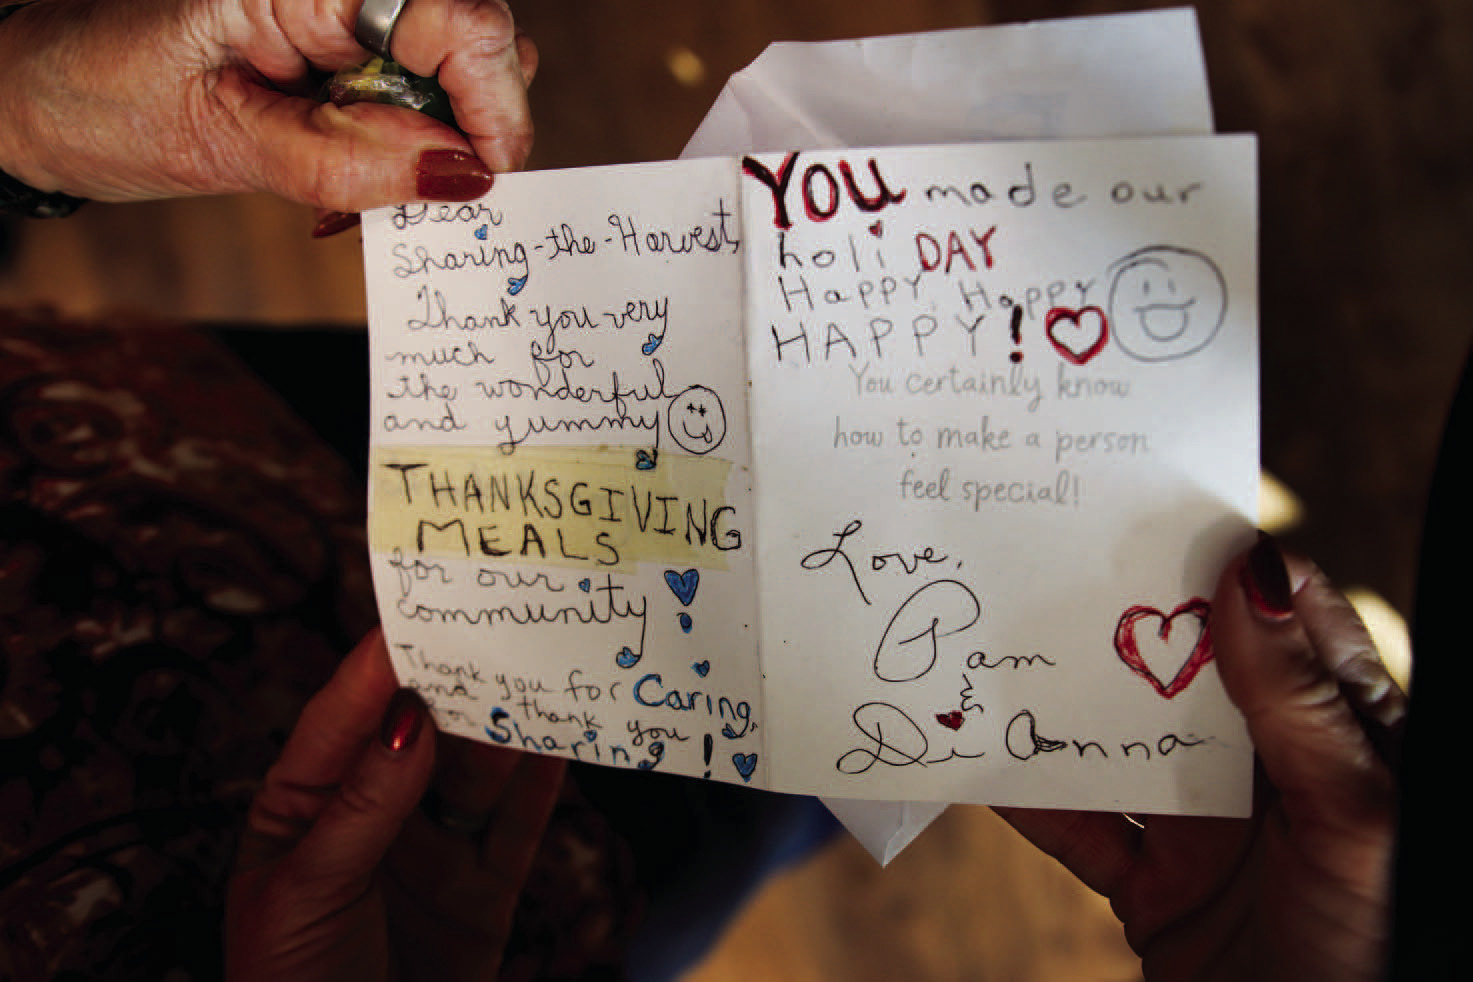 Dear
Sharing-the-Harvest,
Thank you very
much for
the wonderful
and yummy
THANKSGIVING
MEALS
for our
community!
Thank you for Caring,
and thank you
for Sharing!
YOU made our
holiDAY
HAPPY, HAPPY
HAPPY!
You certainly know
how to make a person
feel special!
Love,
Pam
&
DiAnna